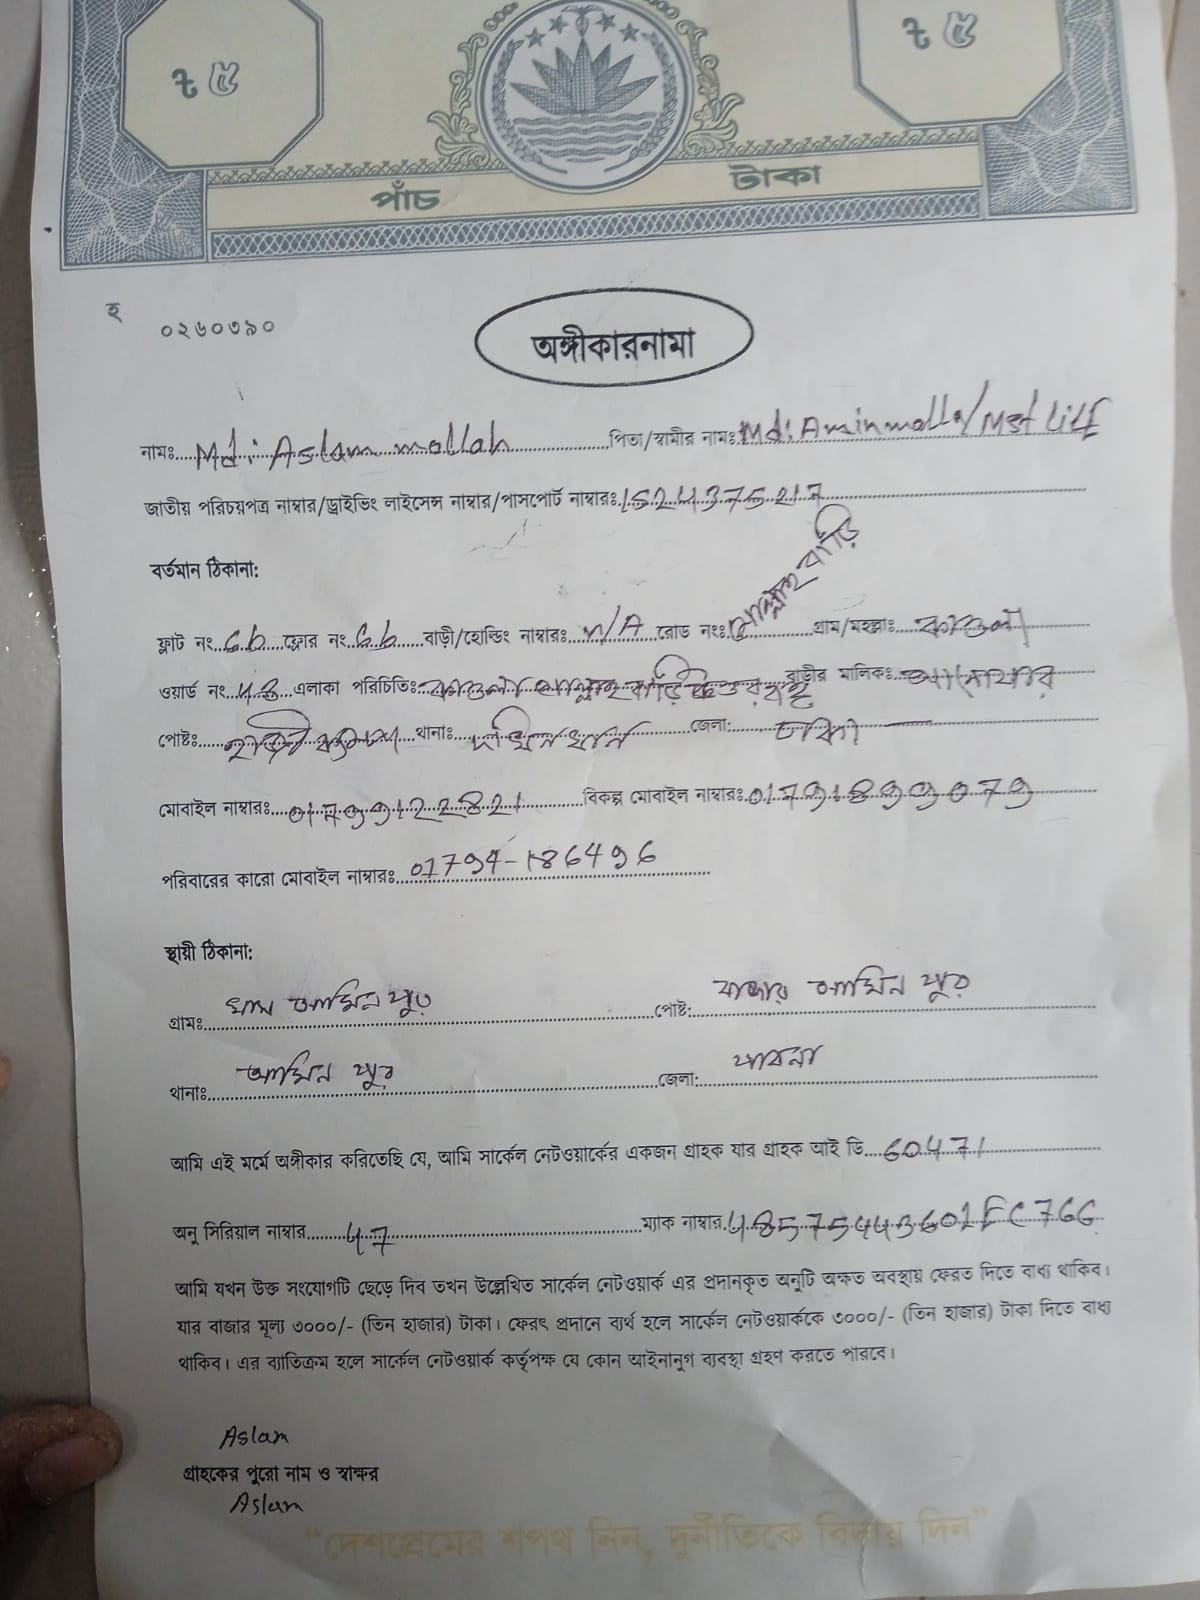 ৳ ৫ ৳ ৫
পাঁচ টাকা
হ ০২৬০৩৯০
অঙ্গীকারনামা
নামঃ Md: Aslam mollah পিতা/স্বামীর নামঃ Md: Amin molla/Mst
জাতীয় পরিচয়পত্র নাম্বার/ড্রাইভিং লাইসেন্স নাম্বার/পাসপোর্ট নাম্বারঃ 1524375217
বর্তমান ঠিকানা:
ফ্লাট নং ফ্লোর নং বাড়ী/হোল্ডিং নাম্বারঃ N/A রোড নংঃ মোল্লার বাড়ি গ্রাম/মহল্লাঃ কাওলা
ওয়ার্ড নং এলাকা পরিচিতিঃ কাওলা মোল্লার বাড়ি বাড়ীর মালিকঃ
পোষ্টঃ থানাঃ দক্ষিনখান জেলা: ঢাকা
মোবাইল নাম্বারঃ বিকল্প মোবাইল নাম্বারঃ
পরিবারের কারো মোবাইল নাম্বারঃ 01794-186496
স্থায়ী ঠিকানা:
গ্রামঃ খাস আমিন পুর পোষ্ট: বাজার আমিন পুর
থানাঃ আমিন পুর জেলা: পাবনা
আমি এই মর্মে অঙ্গীকার করিতেছি যে, আমি সার্কেল নেটওয়ার্কের একজন গ্রাহক যার গ্রাহক আই ডি 60471
অনু সিরিয়াল নাম্বার 47 ম্যাক নাম্বার
আমি যখন উক্ত সংযোগটি ছেড়ে দিব তখন উল্লেখিত সার্কেল নেটওয়ার্ক এর প্রদানকৃত অনুটি অক্ষত অবস্থায় ফেরত দিতে বাধ্য থাকিব।
যার বাজার মূল্য ৩০০০/- (তিন হাজার) টাকা। ফেরৎ প্রদানে ব্যর্থ হলে সার্কেল নেটওয়ার্ককে ৩০০০/- (তিন হাজার) টাকা দিতে বাধ্য
থাকিব। এর ব্যাতিক্রম হলে সার্কেল নেটওয়ার্ক কর্তৃপক্ষ যে কোন আইনানুগ ব্যবস্থা গ্রহণ করতে পারবে।
Aslam
গ্রাহকের পুরো নাম ও স্বাক্ষর
Aslam
“দেশপ্রেমের শপথ নিন, দুর্নীতিকে বিদায় দিন”